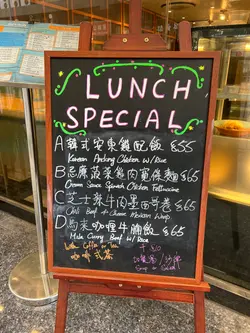 LUNCH
SPECIAL
A 韓式安東雞配飯 $55
Korean Andong Chicken w/ Rice
B 忌廉菠菜雞肉寬條麵 $65
Cream Sauce Spinach Chicken Fettuccine
C 芝士辣牛肉墨西哥卷 $65
Chili Beef & Cheese Mexican Wrap
D 馬來咖喱牛腩飯 $65
Malay Curry Beef w/ Rice
Coffee or Tea
咖啡或茶
Soup or Salad